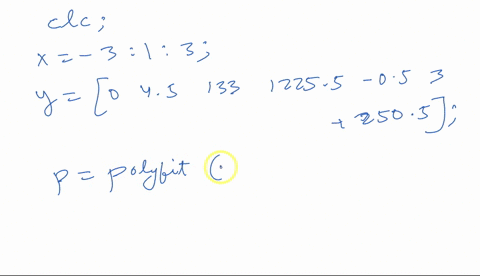 clc;
x = -3 : 1 : 3;
y = [0 4.5 133 1225.5 -0.5 3
+ 250.5];
p = polyfit (